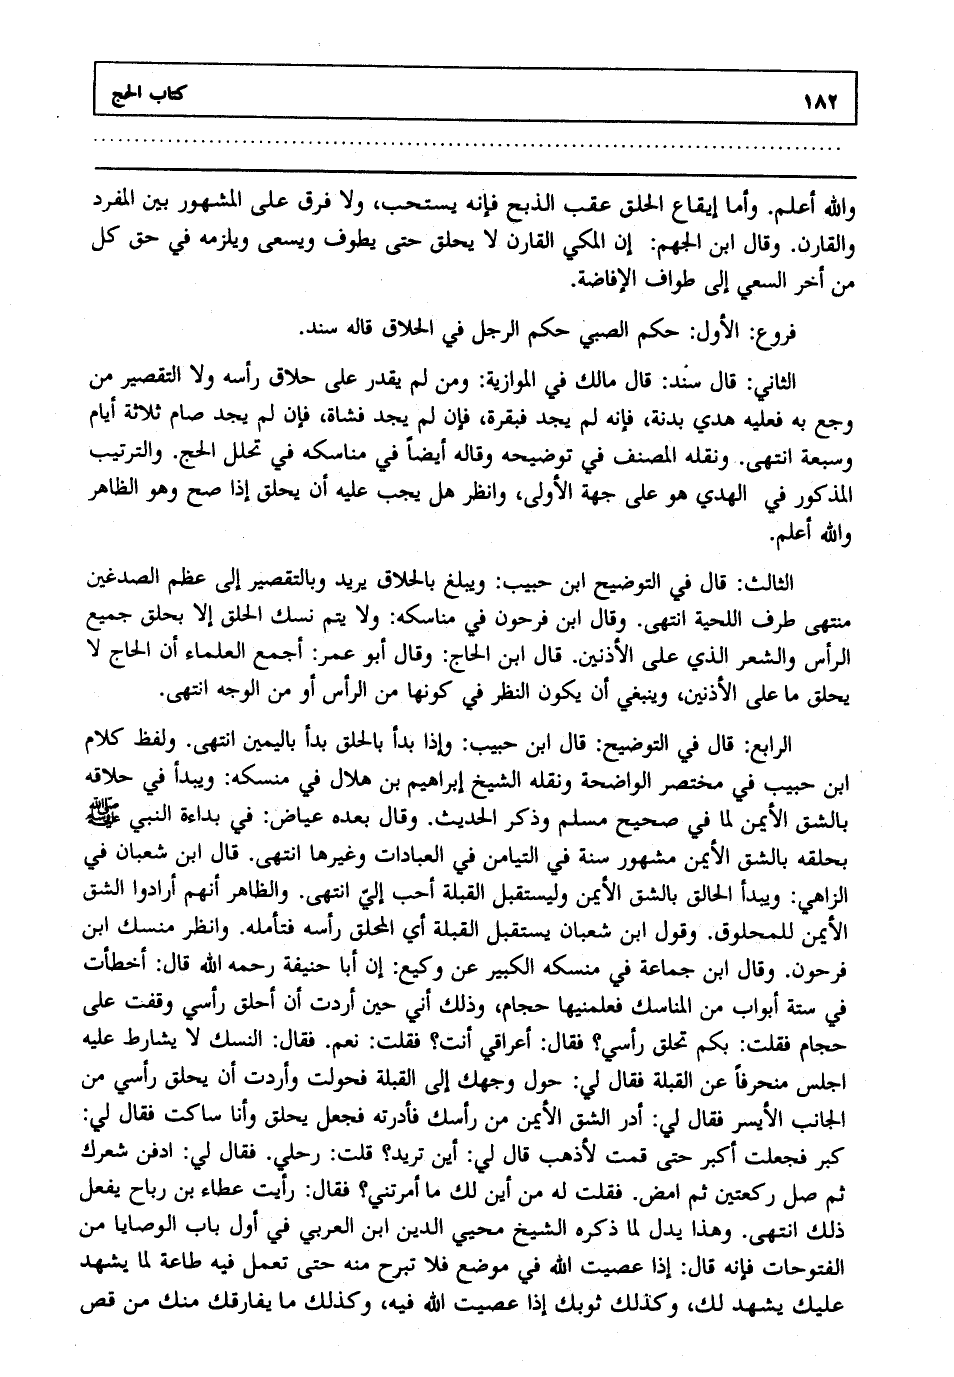 ١٨٢
كتاب الحج
والله أعلم. وأما إيقاع الحلق عقب الذبح فإنه يستحب، ولا فرق على المشهور بين المفرد
والقارن. وقال ابن الجهم: إن المكي القارن لا يحلق حتى يطوف ويسعى ويلزمه في حق كل
من أخر السعي إلى طواف الإفاضة.
فروع: الأول: حكم الصبي حكم الرجل في الحلاق قاله سند.
الثاني: قال سند: قال مالك في الموازية: ومن لم يقدر على حلاق رأسه ولا التقصير من
وجع به فعليه هدي بدنة، فإنه لم يجد فبقرة، فإن لم يجد فشاة، فإن لم يجد صام ثلاثة أيام
وسبعة انتهى. ونقله المصنف في توضيحه وقاله أيضاً في مناسكه في تحلل الحج. والترتيب
المذكور في الهدي هو على جهة الأولى، وانظر هل يجب عليه أن يحلق إذا صح وهو الظاهر
والله أعلم.
الثالث: قال في التوضيح ابن حبيب: ويبلغ بالحلاق يريد وبالتقصير إلى عظم الصدغين
منتهى طرف اللحية انتهى. وقال ابن فرحون في مناسكه: ولا يتم نسك الحلق إلا بحلق جميع
الرأس والشعر الذي على الأذنين. قال ابن الحاج: وقال أبو عمر: أجمع العلماء أن الحاج لا
يحلق ما على الأذنين، وينبغي أن يكون النظر في كونها من الرأس أو من الوجه انتهى.
الرابع: قال في التوضيح: قال ابن حبيب: وإذا بدأ بالحلق بدأ باليمين انتهى. ولفظ كلام
ابن حبيب في مختصر الواضحة ونقله الشيخ إبراهيم بن هلال في منسكه: ويبدأ في حلاقه
بالشق الأيمن لما في صحيح مسلم وذكر الحديث. وقال بعده عياض: في بداءة النبي ﷺ
بحلقه بالشق الأيمن مشهور سنة في التيامن في العبادات وغيرها انتهى. قال ابن شعبان في
الزاهي: ويبدأ الحالق بالشق الأيمن وليستقبل القبلة أحب إليّ انتهى. والظاهر أنهم أرادوا الشق
الأيمن للمحلوق. وقول ابن شعبان يستقبل القبلة أي المحلق رأسه فتأمله. وانظر منسك ابن
فرحون. وقال ابن جماعة في منسكه الكبير عن وكيع: إن أبا حنيفة رحمه الله قال: أخطأت
في ستة أبواب من المناسك فعلمنيها حجام، وذلك أني حين أردت أن أحلق رأسي وقفت على
حجام فقلت: بكم تحلق رأسي؟ فقال: أعراقي أنت؟ فقلت: نعم. فقال: النسك لا يشارط عليه
اجلس منحرفاً عن القبلة فقال لي: حول وجهك إلى القبلة فحولت وأردت أن يحلق رأسي من
الجانب الأيسر فقال لي: أدر الشق الأيمن من رأسك فأدرته فجعل يحلق وأنا ساكت فقال لي:
كبر فجعلت أكبر حتى قمت لأذهب قال لي: أين تريد؟ قلت: رحلي. فقال لي: ادفن شعرك
ثم صل ركعتين ثم امض. فقلت له من أين لك ما أمرتني؟ فقال: رأيت عطاء بن رباح يفعل
ذلك انتهى. وهذا يدل لما ذكره الشيخ محيي الدين ابن العربي في أول باب الوصايا من
الفتوحات فإنه قال: إذا عصيت الله في موضع فلا تبرح منه حتى تعمل فيه طاعة لما يشهد
عليك يشهد لك، وكذلك ثوبك إذا عصيت الله فيه، وكذلك ما يفارقك منك من قص